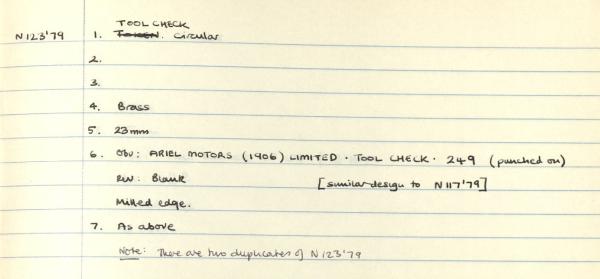 TOOL CHECK
N123'79 1. TOKEN. Circular
2.
3.
4. Brass
5. 23mm
6. Obv: ARIEL MOTORS (1906) LIMITED · TOOL CHECK · 249 (punched on)
Rev: Blank [similar design to N117'79]
Milled edge.
7. As above
Note: There are two duplicates of N123'79